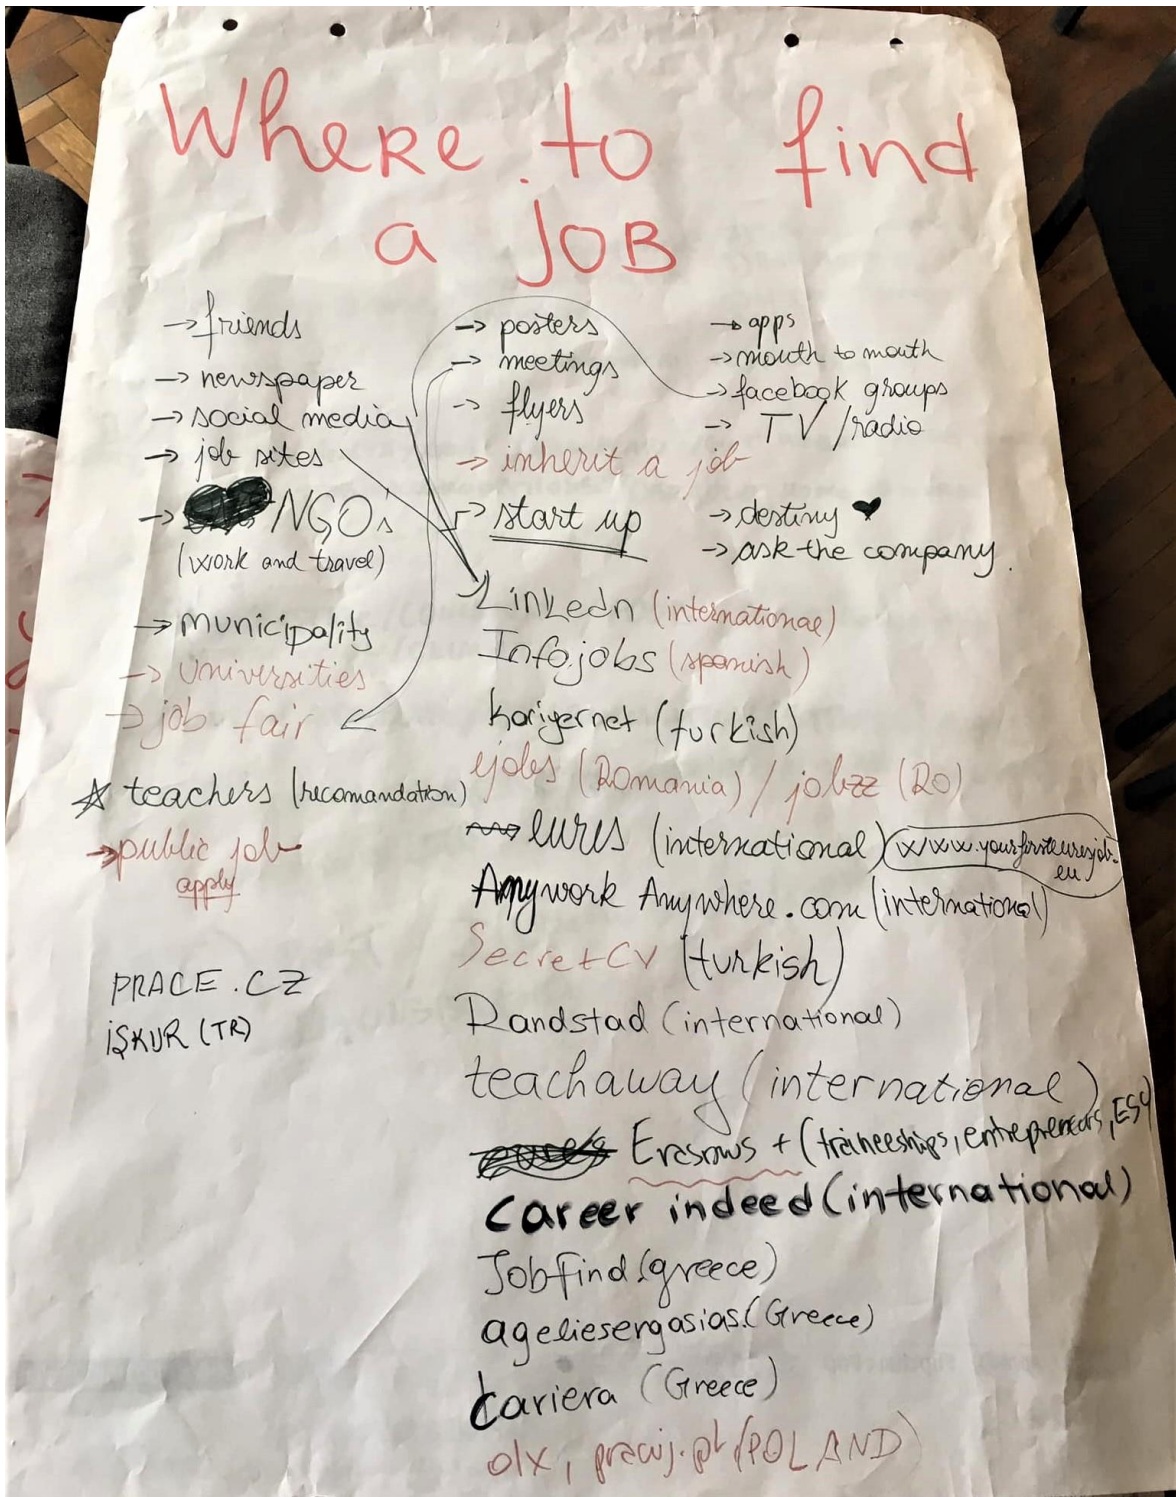 Where to find
a JOB
→ friends
→ newspaper
→ social media
→ job sites
→ NGO's
(work and travel)
→ municipality
→ Universities
→ job fair
☆ teachers (recomandation)
→ public job
apply
PRACE.CZ
İŞKUR (TR)
→ posters
→ meetings
→ flyers
→ inherit a job
→ start up
→ apps
→ mouth to mouth
→ facebook groups
→ TV /radio
→ destiny ♥
→ ask the company.
Linkedn (international)
Infojobs (spanish)
kariyernet (turkish)
ejobs (Romania) / jobzz (RO)
eures (international) www.yourfirsteuresjob.
eu
Anywork Anywhere.com (international)
SecretCV (turkish)
Randstad (international)
teachaway (international)
Erasmus + (traineeships, entrepreneurs, ESC)
Career indeed (international)
Jobfind (greece)
ageliesergasias. (Greece)
kariera (Greece)
olx, pracuj.pl (POLAND)